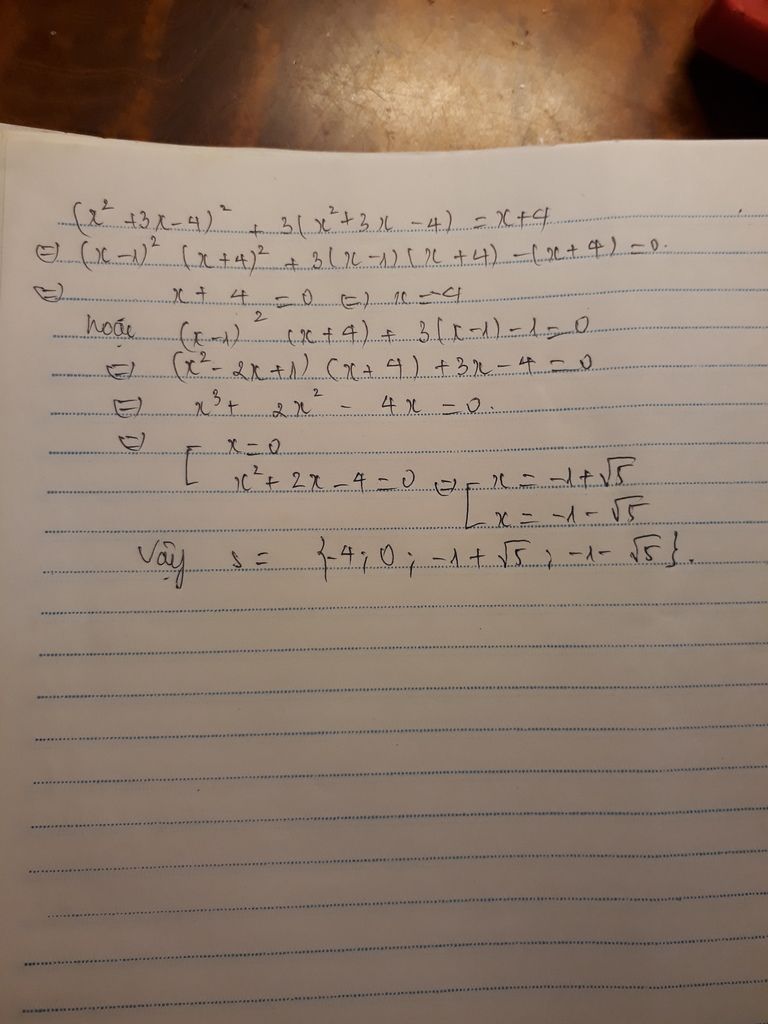 (x² + 3x - 4)² + 3(x² + 3x - 4) = x + 4
⇔ (x - 1)² (x + 4)² + 3(x - 1)(x + 4) - (x + 4) = 0.
⇔ x + 4 = 0 ⇔ x = -4
hoặc (x - 1)² (x + 4) + 3(x - 1) - 1 = 0
⇔ (x² - 2x + 1)(x + 4) + 3x - 4 = 0
⇔ x³ + 2x² - 4x = 0.
⇔ [ x = 0
x² + 2x - 4 = 0 ⇔ [ x = -1 + √5
x = -1 - √5
Vậy s = {-4; 0; -1 + √5; -1 - √5}.